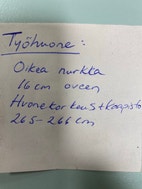 Työhuone:
Oikea nurkka
16 cm oveen
Huonekorkeus + kaapisto
265-266 cm